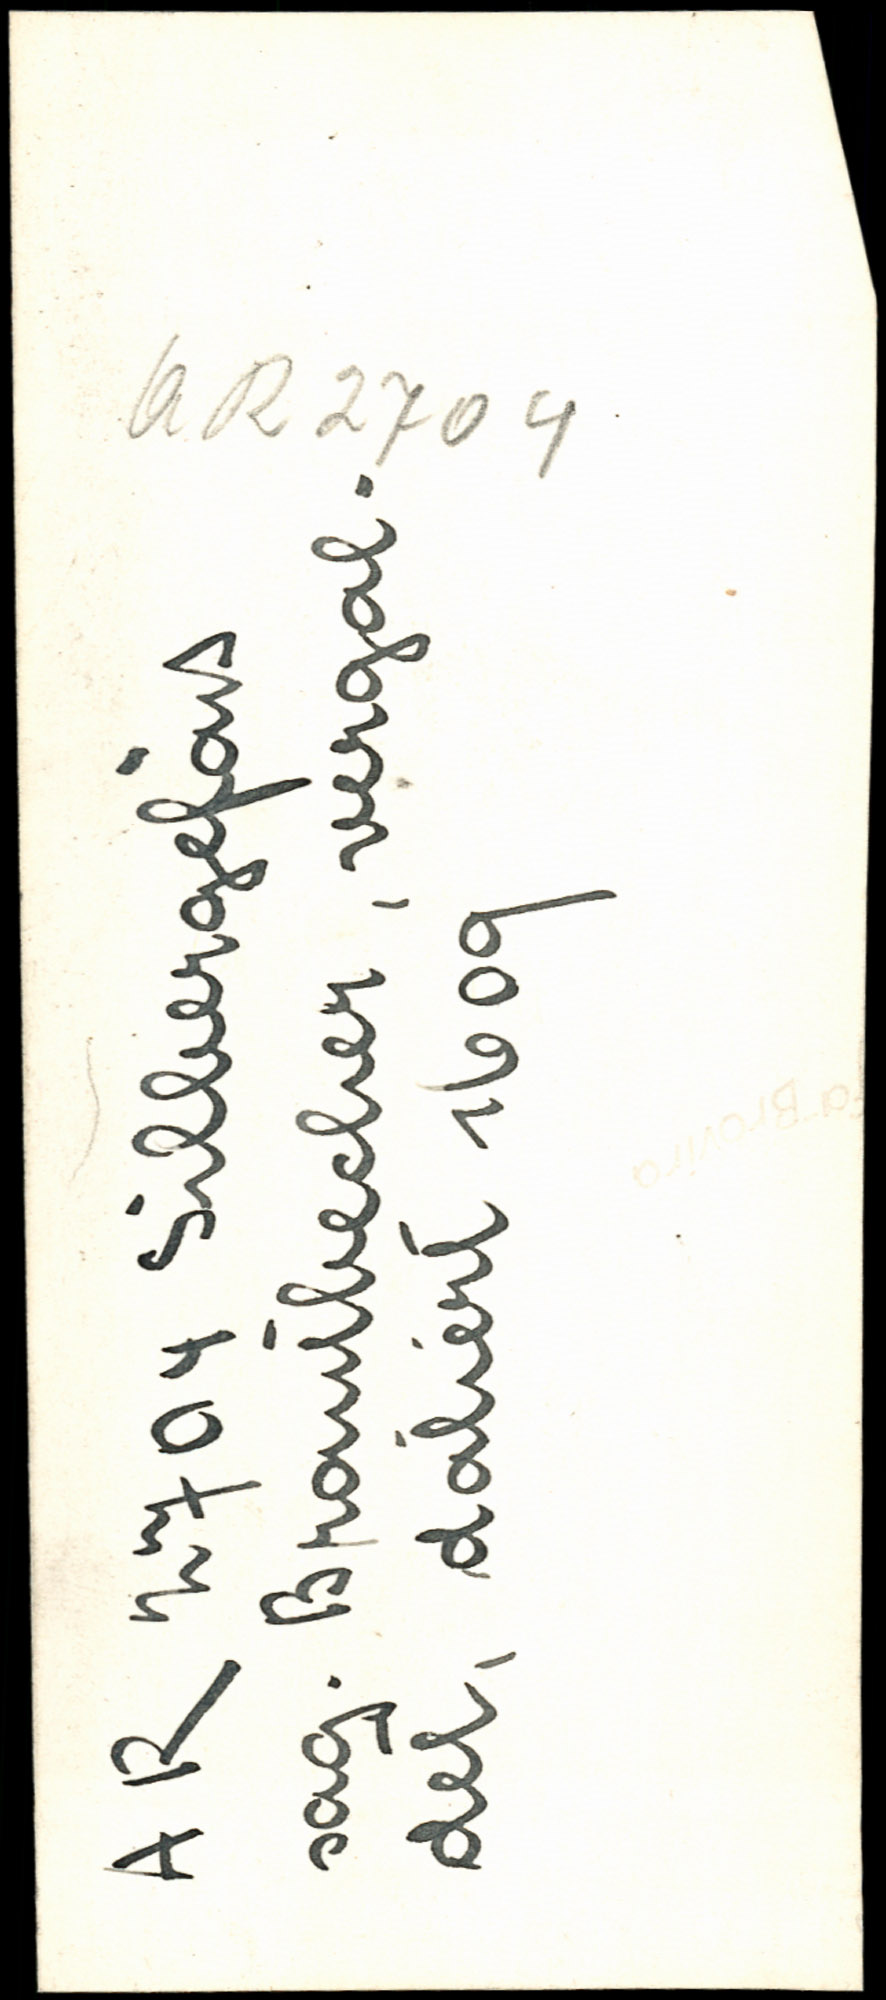 AR 2704
AR 2704 Silbergefäss
sog. Brautbecher, vergol.
det, datiert 1609